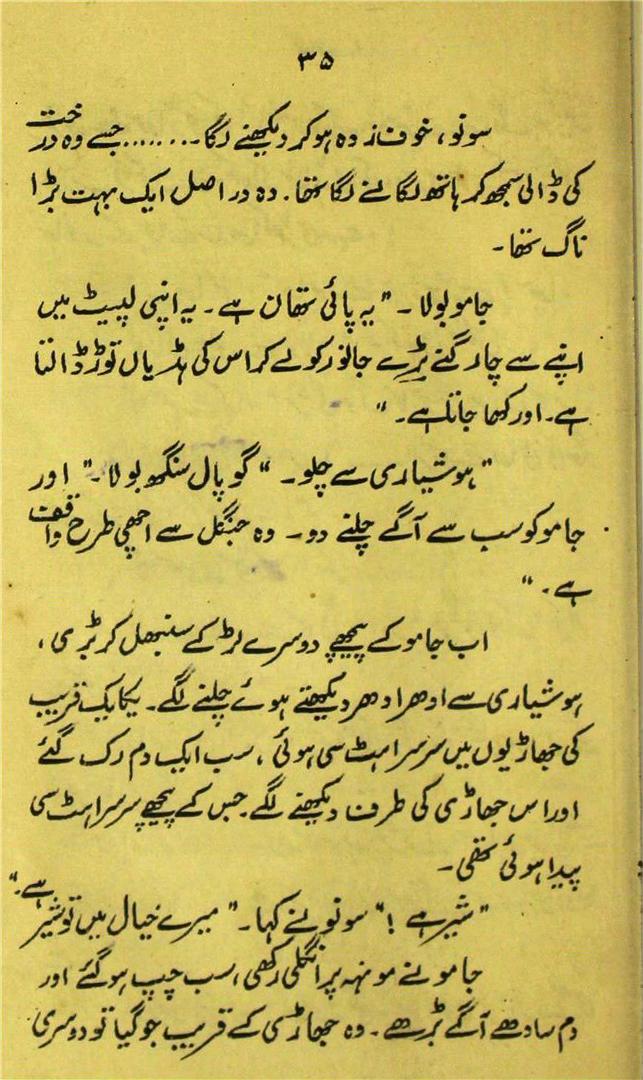 ۳۵
سونو، خوف زدہ ہو کر دیکھنے لگا۔....... جسے وہ درخت
کی ڈالی سمجھ کر ہاتھ لگانے لگا تھا۔ وہ دراصل ایک بہت بڑا
ناگ تھا۔
جامو بولا۔ "یہ پائی تھان ہے۔ یہ اپنی لپیٹ میں
اپنے سے چار گنے بڑے جانور کو لے کر اس کی ہڈیاں توڑ ڈالتا
ہے۔ اور کھا جاتا ہے۔"
"ہوشیاری سے چلو۔" گوپال سنگھ بولا۔ "اور
جامو کو سب سے آگے چلنے دو۔ وہ جنگل سے اچھی طرح واقف
ہے۔"
اب جامو کے پیچھے دوسرے لڑکے سنبھل کر بڑی،
ہوشیاری سے ادھر ادھر دیکھتے ہوئے چلنے لگے۔ یکایک قریب
کی جھاڑیوں میں سرسراہٹ سی ہوئی، سب ایک دم رک گئے
اور اس جھاڑی کی طرف دیکھنے لگے۔ جس کے پیچھے سرسراہٹ سی
پیدا ہوئی تھی۔
"شیر ہے!" سونو نے کہا۔ "میرے خیال میں تو شیر ہے۔"
جامو نے مونہہ پر انگلی رکھی، سب چپ ہو گئے اور
دم سادھے آگے بڑھے۔ وہ جھاڑی کے قریب جو گیا تو دوسری